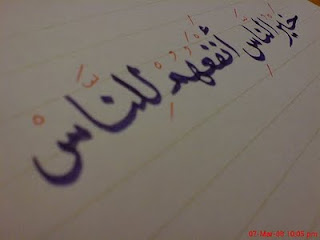 خير الناس أنفعهم للناس
07-Mar-09 10:05 pm